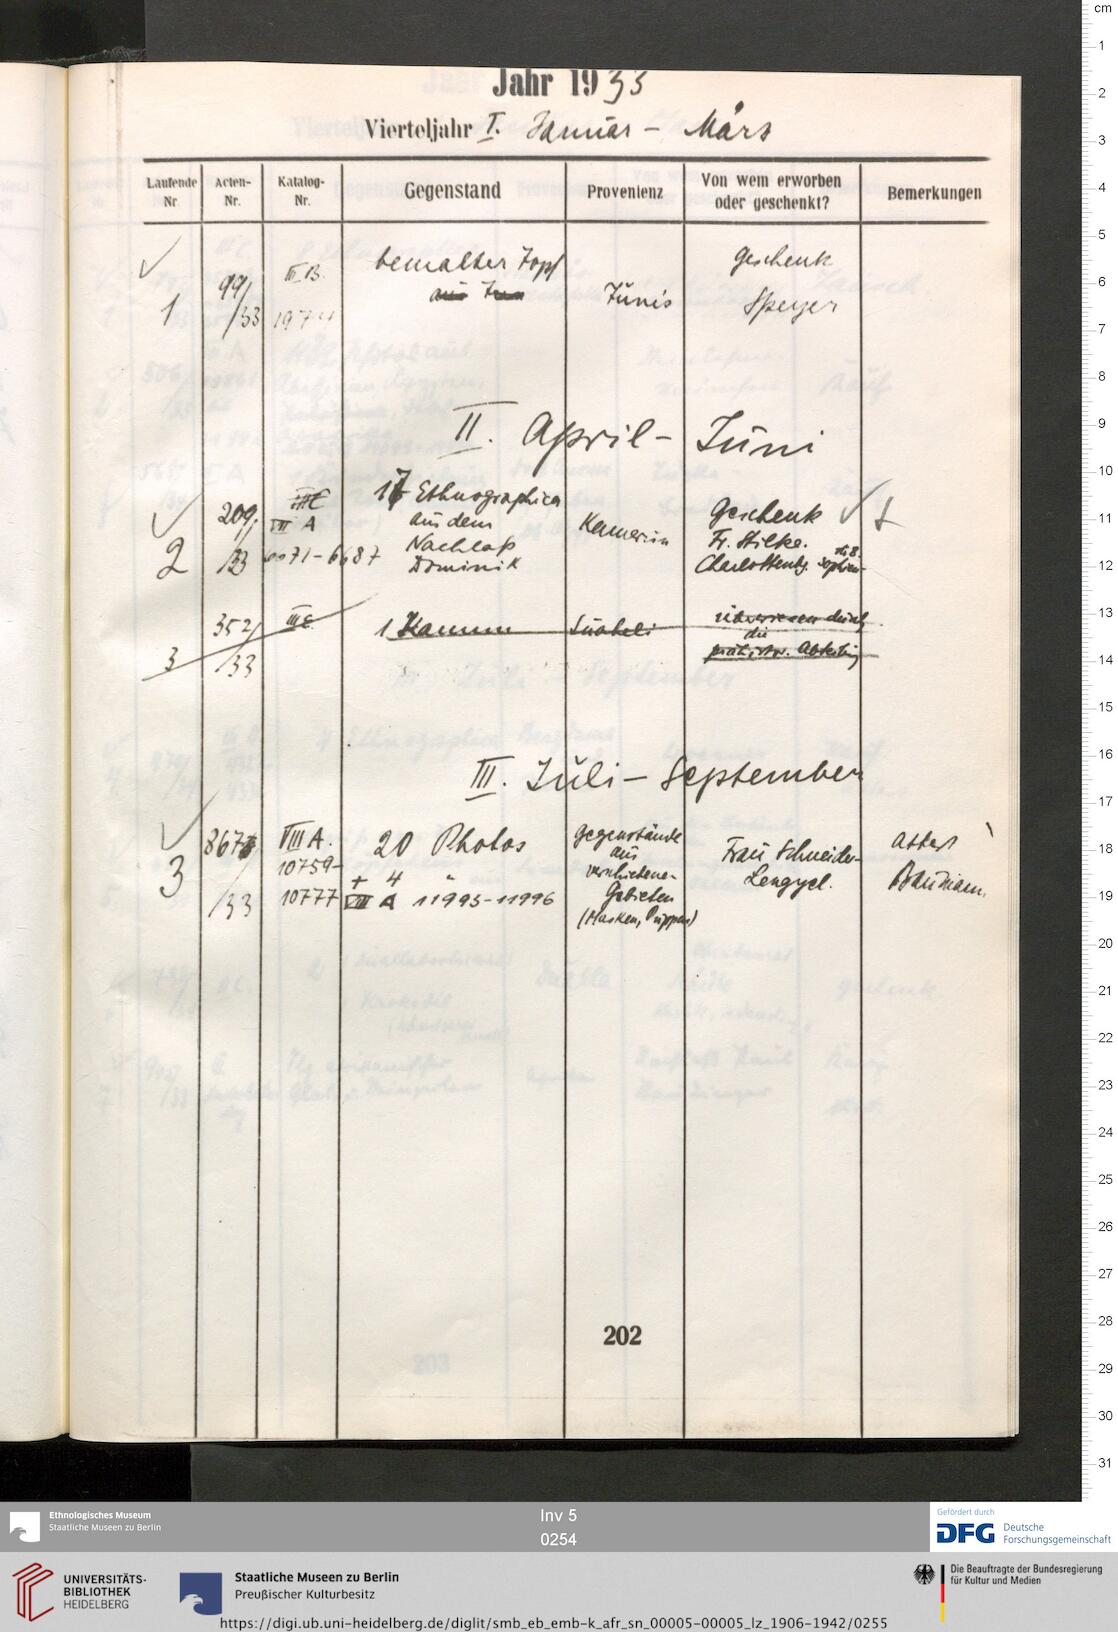 Jahr 1933
Vierteljahr I. Januar - März
Laufende Nr.
Acten-Nr.
Katalog-Nr.
Gegenstand
Provenienz
Von wem erworben oder geschenkt?
Bemerkungen
1
99/33
III B.
1974
bemalter Topf
aus
Tunis
Geschenk
Speyer
II. April - Juni
2
209/33
III C
III A
6671-6687
17 Ethnographica
aus dem
Nachlaß
Dominik
Kamerun
Geschenk
Fr. Stilke.
Charlottenbg.
3
352/33
III E
1 Kamm
Suaheli
überwiesen durch
die
prähistor. Abteilung
III. Juli - September
3
867/33
VIII A.
10759-
10777
20 Photos
+ 4 "
VIII A 11995-11996
Gegenstände
aus
verschiedenen
Gebieten
(Masken, Puppen)
Frau Schneider-
Lengyel.
Baumann.
202
cm
1
2
3
4
5
6
7
8
9
10
11
12
13
14
15
16
17
18
19
20
21
22
23
24
25
26
27
28
29
30
31
Ethnologisches Museum
Staatliche Museen zu Berlin
Inv 5
0254
Gefördert durch
DFG Deutsche
Forschungsgemeinschaft
UNIVERSITÄTS-
BIBLIOTHEK
HEIDELBERG
Staatliche Museen zu Berlin
Preußischer Kulturbesitz
Die Beauftragte der Bundesregierung
für Kultur und Medien
https://digi.ub.uni-heidelberg.de/diglit/smb_eb_emb-k_afr_sn_00005-00005_lz_1906-1942/0255